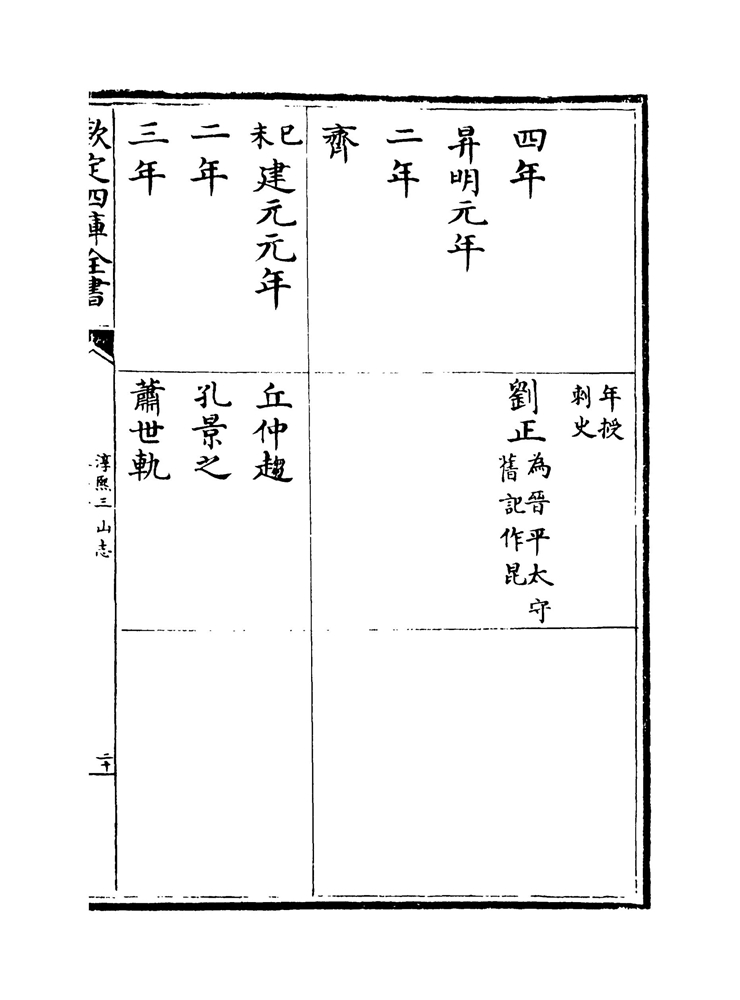 年授
刺史
四年
劉正為晉平太守
舊記作昆
昇明元年
二年
齊
己未建元元年
丘仲起
二年
孔景之
三年
蕭世軌
欽定四庫全書
淳熙三山志
二十